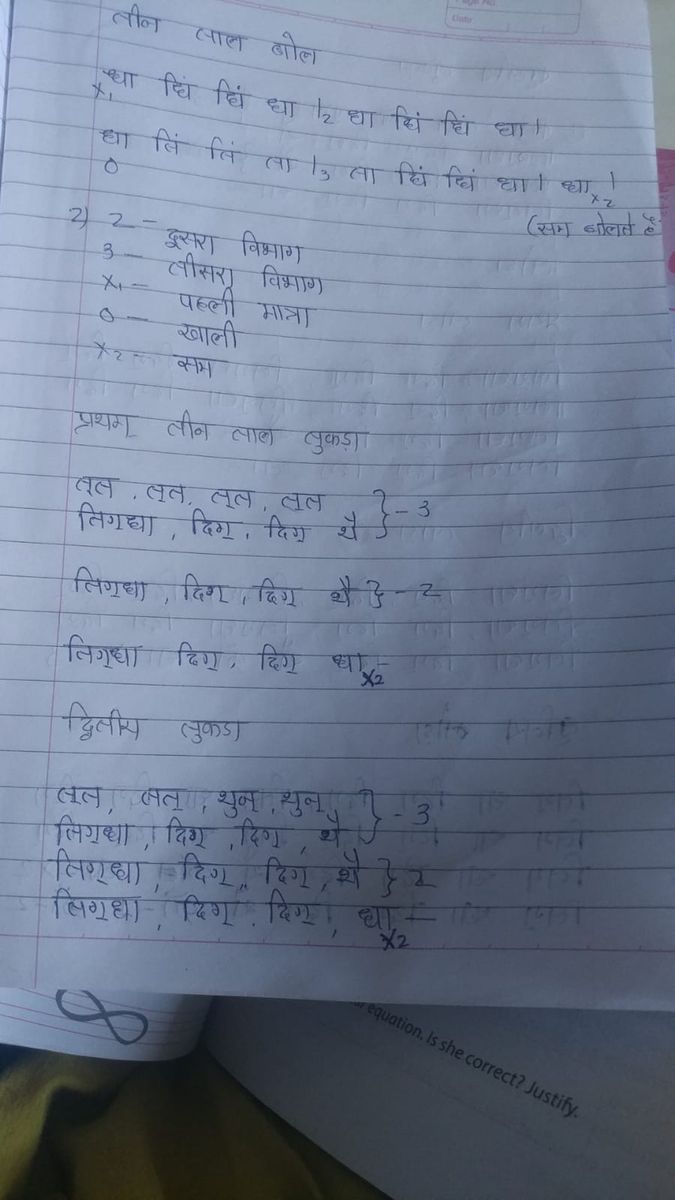 Date
तीन ताल बोल
धा धिं धिं धा ।₂ धा धिं धिं धा ।
x₁
धा तिं तिं ता ।₃ ता धिं धिं धा । धा ।
0 x₂
(सम बोलते हैं
2) 2 - दूसरा विभाग
3 - तीसरा विभाग
x₁ - पहली मात्रा
0 - खाली
x₂ - सम
प्रथम् तीन ताल तुकड़ा
तत्त, तत्त, तत्त, तत्त } - 3
तिग्धा, दिग्, दिग् थै
तिग्धा, दिग्, दिग् थै } - 2
तिग्धा दिग्, दिग् धा -
x₂
द्वितीय तुकडा
तत्त, तत्, थुन्, थुन् } - 3
तिग्धा, दिग्, दिग्, थै
तिग्धा, दिग्, दिग्, थै } 2
तिग्धा, दिग्, दिग्, धा -
x₂
equation. Is she correct? Justify.